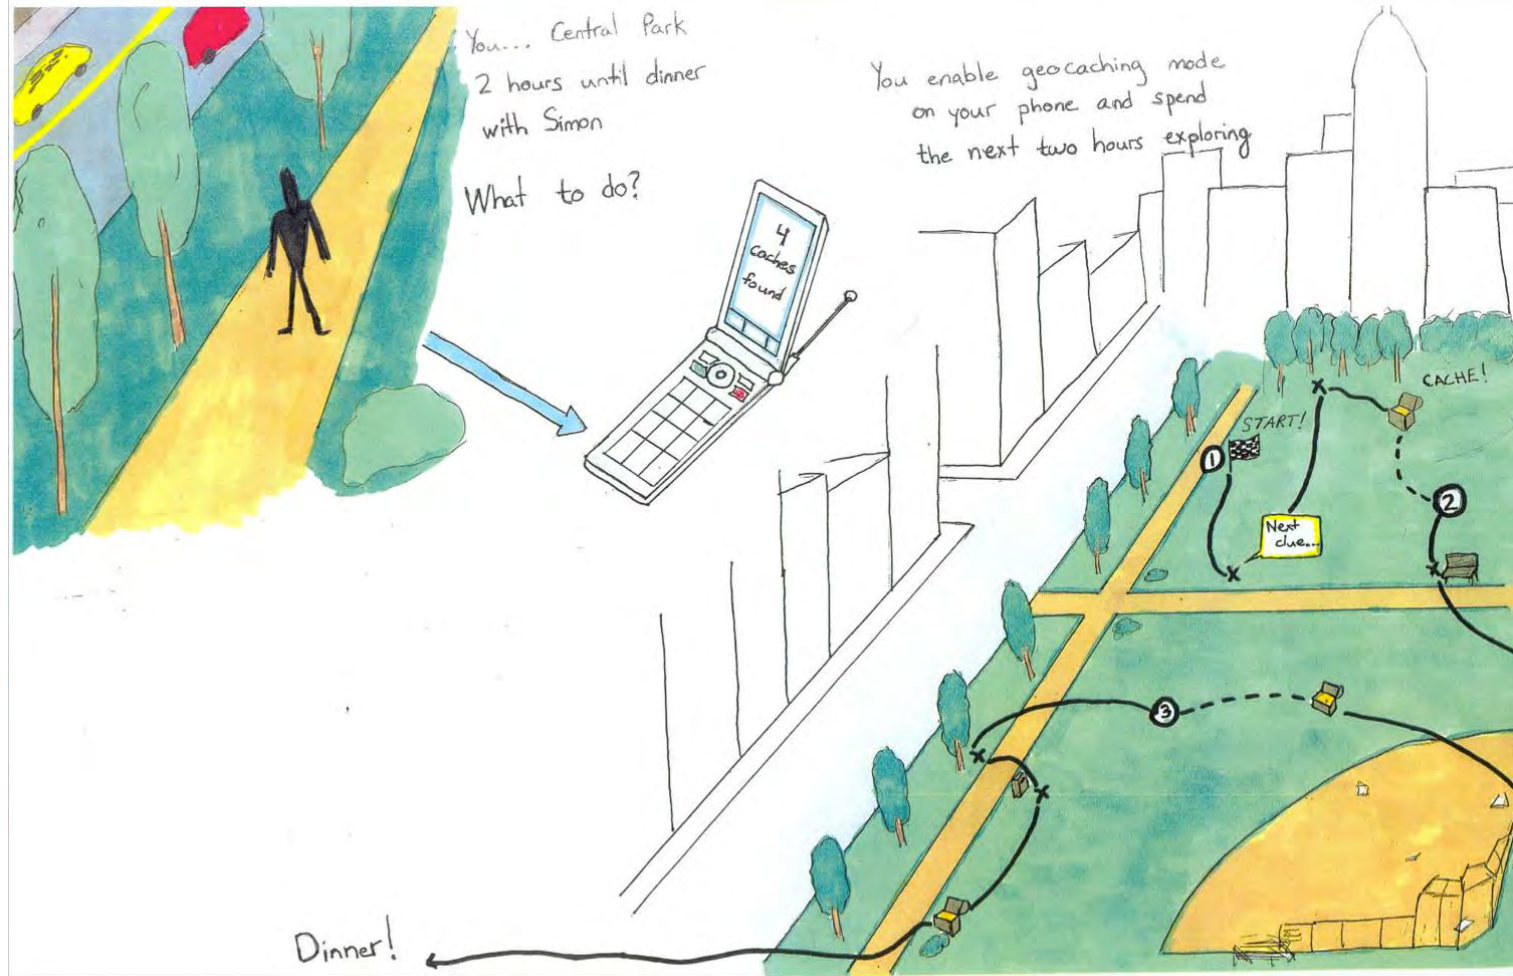 You... Central Park
2 hours until dinner
with Simon
What to do?
4
caches
found
You enable geocaching mode
on your phone and spend
the next two hours exploring
CACHE!
START!
1
2
Next
clue...
3
Dinner!